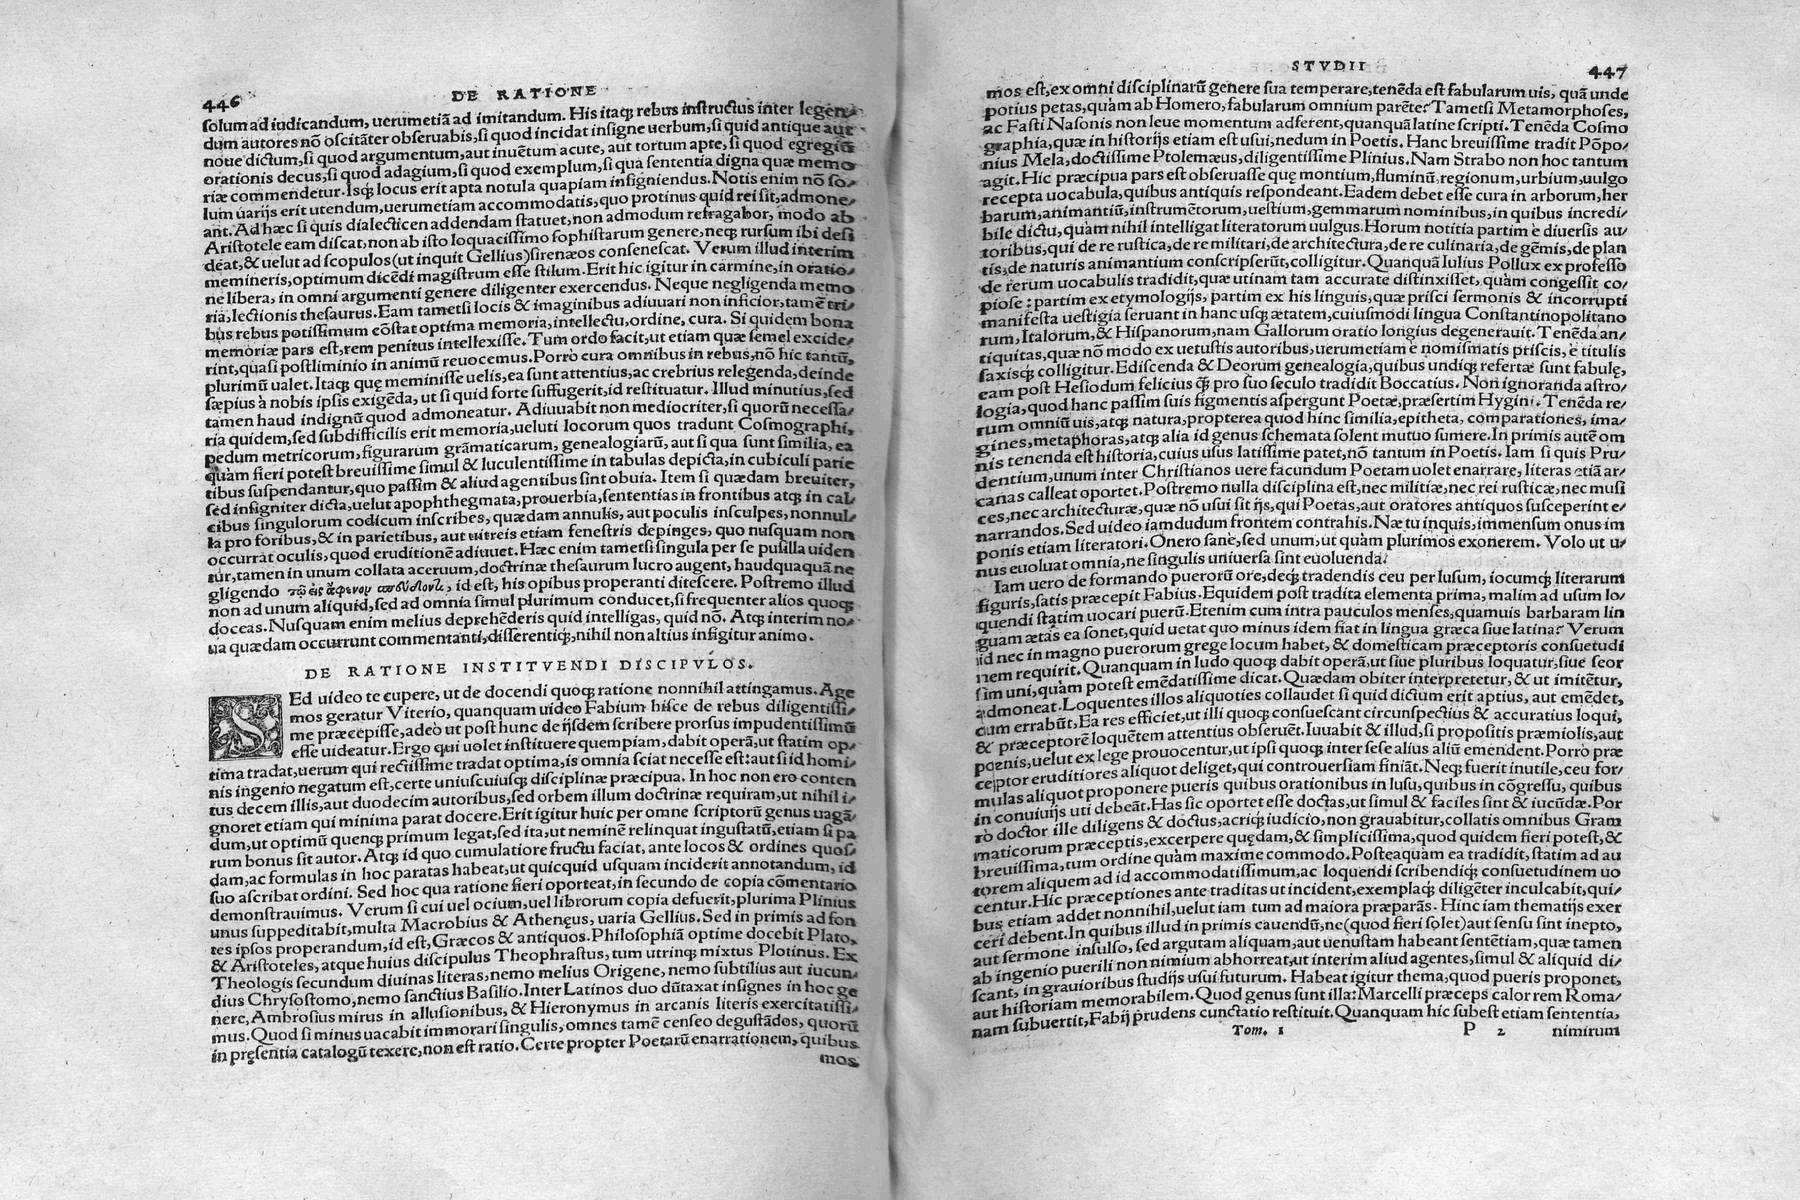 446
DE RATIONE
solum ad iudicandum, uerumetiã ad imitandum. His itaq; rebus instructus inter legen-
dum autores nõ oscitãter obseruabis, si quod incidat insigne uerbum, si quid antique aut
noue dictum, si quod argumentum, aut inuẽtum acute, aut tortum apte, si quod egregiũ
orationis decus, si quod adagium, si quod exemplum, si qua sententia digna quæ memo
riæ commendetur. Isq; locus erit apta notula quapiam insigniendus. Notis enim nõ so-
lum uarijs erit utendum, uerumetiam accommodatis, quo protinus quid rei sit, admone-
ant. Ad hæc si quis dialecticen addendam statuet, non admodum refragabor, modo ab
Aristotele eam discat, non ab isto loquacissimo sophistarum genere, neq; rursum ibi desi
deat, & uelut ad scopulos (ut inquit Gellius) sirenæos consenescat. Verum illud interim
memineris, optimum dicẽdi magistrum esse stilum. Erit hic igitur in carmine, in oratio-
ne libera, in omni argumenti genere diligenter exercendus. Neque negligenda memo
ria, lectionis thesaurus. Eam tametsi locis & imaginibus adiuuari non inficior, tamẽ tri-
bus rebus potissimum cõstat optima memoria, intellectu, ordine, cura. Si quidem bona
memoriæ pars est, rem penitus intellexisse. Tum ordo facit, ut etiam quæ semel excide-
rint, quasi postliminio in animũ reuocemus. Porrò cura omnibus in rebus, nõ hic tantũ,
plurimũ ualet. Itaq; quę meminisse uelis, ea sunt attentius, ac crebrius relegenda, deinde
sæpius à nobis ipsis exigẽda, ut si quid forte suffugerit, id restituatur. Illud minutius, sed
tamen haud indignũ quod admoneatur. Adiuuabit non mediocriter, si quorũ necessa-
ria quidem, sed subdifficilis erit memoria, ueluti locorum quos tradunt Cosmographi,
pedum metricorum, figurarum grãmaticarum, genealogiarũ, aut si qua sunt similia, ea
quàm fieri potest breuissime simul & luculentissime in tabulas depicta, in cubiculi parie
tibus suspendantur, quo passim & aliud agentibus sint obuia. Item si quædam breuiter,
sed insigniter dicta, uelut apophthegmata, prouerbia, sententias in frontibus atq; in cal
cibus singulorum codicum inscribes, quædam annulis, aut poculis insculpes, nonnul-
la pro foribus, & in parietibus, aut uitreis etiam fenestris depinges, quo nusquam non
occurrat oculis, quod eruditionẽ adiuuet. Hæc enim tametsi singula per se pusilla uiden
tur, tamen in unum collata aceruum, doctrinæ thesaurum lucro augent, haudquaquã ne
gligendo τῷ εἰς ἄφενον σπεύδοντι, id est, his opibus properanti ditescere. Postremo illud
non ad unum aliquid, sed ad omnia simul plurimum conducet, si frequenter alios quoq;
doceas. Nusquam enim melius deprehẽderis quid intelligas, quid nõ. Atq; interim no-
ua quædam occurrunt commentanti, disserentiq;, nihil non altius infigitur animo.
DE RATIONE INSTITVENDI DISCIPVLOS.
SEd uideo te cupere, ut de docendi quoq; ratione nonnihil attingamus. Age
mos geratur Viterio, quanquam uideo Fabium hisce de rebus diligentissi-
me præcepisse, adeò ut post hunc de ijsdem scribere prorsus impudentissimũ
esse uideatur. Ergo qui uolet instituere quempiam, dabit operã, ut statim op-
tima tradat, uerum qui rectissime tradat optima, is omnia sciat necesse est: aut si id homi-
nis ingenio negatum est, certe uniuscuiusq; disciplinæ præcipua. In hoc non ero conten
tus decem illis, aut duodecim autoribus, sed orbem illum doctrinæ requiram, ut nihil i-
gnoret etiam qui minima parat docere. Erit igitur huic per omne scriptorũ genus uagã-
dum, ut optimũ quenq; primum legat, sed ita, ut neminẽ relinquat ingustatũ, etiam si pa
rum bonus sit autor. Atq; id quo cumulatiore fructu faciat, ante locos & ordines quos-
dam, ac formulas in hoc paratas habeat, ut quicquid usquam inciderit annotandum, id
suo ascribat ordini. Sed hoc qua ratione fieri oporteat, in secundo de copia cõmentario
demonstrauimus. Verum si cui uel ocium, uel librorum copia defuerit, plurima Plinius
unus suppeditabit, multa Macrobius & Athenęus, uaria Gellius. Sed in primis ad fon
tes ipsos properandum, id est, Græcos & antiquos. Philosophiã optime docebit Plato,
& Aristoteles, atque huius discipulus Theophrastus, tum utrinq; mixtus Plotinus. Ex
Theologis secundum diuinas literas, nemo melius Origene, nemo subtilius aut iucun-
dius Chrysostomo, nemo sanctius Basilio. Inter Latinos duo dũtaxat insignes in hoc ge
nere, Ambrosius mirus in allusionibus, & Hieronymus in arcanis literis exercitatissi-
mus. Quod si minus uacabit immorari singulis, omnes tamẽ censeo degustãdos, quorũ
in pręsentia catalogũ texere, non est ratio. Certe propter Poetarũ enarrationem, quibus
mos
STVDII
447
mos est, ex omni disciplinarũ genere sua temperare, tenẽda est fabularum uis, quã unde
potius petas, quàm ab Homero, fabularum omnium parẽte? Tametsi Metamorphoses,
ac Fasti Nasonis non leue momentum adferent, quanquã latine scripti. Tenẽda Cosmo
graphia, quæ in historijs etiam est usui, nedum in Poetis. Hanc breuissime tradit Põpo-
nius Mela, doctissime Ptolemæus, diligentissime Plinius. Nam Strabo non hoc tantum
agit. Hic præcipua pars est obseruasse quę montium, fluminũ, regionum, urbium, uulgo
recepta uocabula, quibus antiquis respondeant. Eadem debet esse cura in arborum, her
barum, animantiũ, instrumẽtorum, uestium, gemmarum nominibus, in quibus incredi-
bile dictu, quàm nihil intelligat literatorum uulgus. Horum notitia partim è diuersis au
toribus, qui de re rustica, de re militari, de architectura, de re culinaria, de gẽmis, de plan
tis, de naturis animantium conscripserũt, colligitur. Quanquã Iulius Pollux ex professo
de rerum uocabulis tradidit, quæ utinam tam accurate distinxisset, quàm congessit co-
piose: partim ex etymologijs, partim ex his linguis, quæ prisci sermonis & incorrupti
manifesta uestigia seruant in hanc usq; ætatem, cuiusmodi lingua Constantinopolitano
rum, Italorum, & Hispanorum, nam Gallorum oratio longius degenerauit. Tenẽda an-
tiquitas, quæ nõ modo ex uetustis autoribus, uerumetiam è nomismatis priscis, è titulis
saxisq; colligitur. Ediscenda & Deorum genealogia, quibus undiq; refertæ sunt fabulę,
eam post Hesiodum felicius q̃ pro suo seculo tradidit Boccatius. Non ignoranda astro-
logia, quod hanc passim suis figmentis aspergunt Poetæ, præsertim Hygini. Tenẽda re-
rum omniũ uis, atq; natura, propterea quod hinc similia, epitheta, comparationes, ima-
gines, metaphoras, atq; alia id genus schemata solent mutuo sumere. In primis autẽ om
nis tenenda est historia, cuius usus latissime patet, nõ tantum in Poetis. Iam si quis Pru-
dentium, unum inter Christianos uere facundum Poetam uolet enarrare, literas etiã ar-
canas calleat oportet. Postremo nulla disciplina est, nec militiæ, nec rei rusticæ, nec musi
ces, nec architecturæ, quæ nõ usui sit ijs, qui Poetas, aut oratores antiquos susceperint e-
narrandos. Sed uideo iamdudum frontem contrahis. Næ tu inquis, immensum onus im
ponis etiam literatori. Onero sanè, sed unum, ut quàm plurimos exonerem. Volo ut u-
nus euoluat omnia, ne singulis uniuersa sint euoluenda.
Iam uero de formando puerorũ ore, deq; tradendis ceu per lusum, iocumq; literarum
figuris, satis præcepit Fabius. Equidem post tradita elementa prima, malim ad usum lo-
quendi statim uocari puerũ. Etenim cum intra pauculos menses, quamuis barbaram lin
guam ætas ea sonet, quid uetat quo minus idem fiat in lingua græca siue latina? Verum
id nec in magno puerorum grege locum habet, & domesticam præceptoris consuetudi
nem requirit. Quanquam in ludo quoq; dabit operã, ut siue pluribus loquatur, siue seor
sim uni, quàm potest emẽdatissime dicat. Quædam obiter interpretetur, & ut imitẽtur,
admoneat. Loquentes illos aliquoties collaudet si quid dictum erit aptius, aut emẽdet,
cum errabũt. Ea res efficiet, ut illi quoq; consuescant circunspectius & accuratius loqui,
& præceptorẽ loquẽtem attentius obseruẽt. Iuuabit & illud, si propositis præmiolis, aut
pœnis, uelut ex lege prouocentur, ut ipsi quoq; inter sese alius aliũ emendent. Porrò præ
ceptor eruditiores aliquot deliget, qui controuersiam finiãt. Neq; fuerit inutile, ceu for-
mulas aliquot proponere pueris quibus orationibus in lusu, quibus in cõgressu, quibus
in conuiuijs uti debeãt. Has sic oportet esse doctas, ut simul & faciles sint & iucũdæ. Por
rò doctor ille diligens & doctus, acriq; iudicio, non grauabitur, collatis omnibus Gram
maticorum præceptis, excerpere quędam, & simplicissima, quod quidem fieri potest, &
breuissima, tum ordine quàm maxime commodo. Posteaquàm ea tradidit, statim ad au
torem aliquem ad id accommodatissimum, ac loquendi scribendiq; consuetudinem uo
centur. Hic præceptiones ante traditas ut incident, exemplaq; diligẽter inculcabit, qui-
bus etiam addet nonnihil, uelut iam tum ad maiora præparãs. Hinc iam thematijs exer
ceri debent. In quibus illud in primis cauendũ, ne (quod fieri solet) aut sensu sint inepto,
aut sermone insulso, sed argutam aliquam, aut uenustam habeant sentẽtiam, quæ tamen
ab ingenio puerili non nimium abhorreat, ut interim aliud agentes, simul & aliquid di-
scant, in grauioribus studijs usui futurum. Habeat igitur thema, quod pueris proponet,
aut historiam memorabilem. Quod genus sunt illa: Marcelli præceps calor rem Roma-
nam subuertit, Fabij prudens cunctatio restituit. Quanquam hic subest etiam sententia,
Tom. 1 P 2 nimirum